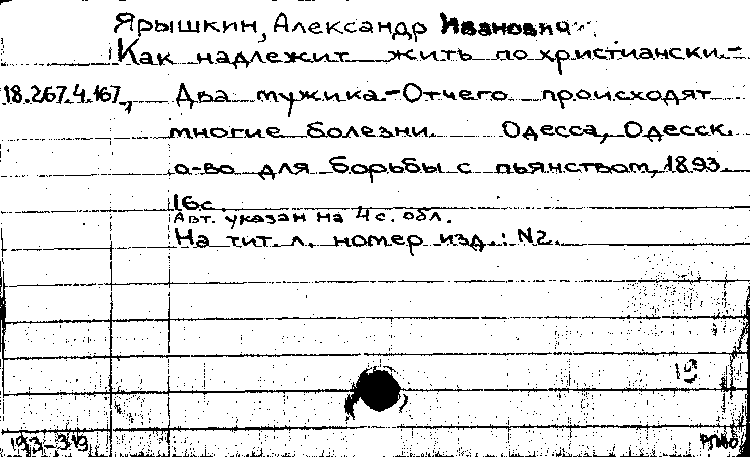 Ярышкин, Александр Иванович.
Как надлежит жить по христиански.-
18.267.4.167, Два мужика.-Отчего происходят
многие болезни. Одесса, Одесск.
о-во для борьбы с пьянством, 1893.
16с.
Авт. указан на 4 с. обл.
На тит. л. номер изд.: N2.
19
193-319